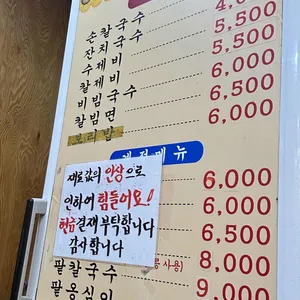 손칼국수
잔치국수
수제비 5,500
칼제비 5,500
비빔국수 6,000
칼빔면 6,500
보리밥 6,000
메뉴
6,000
6,000
6,500
사용)
팥칼국수 8,000
팥옹심이 9,000
재료값의 인상으로
인하여 힘들어요!
현금결재 부탁합니다
감사합니다